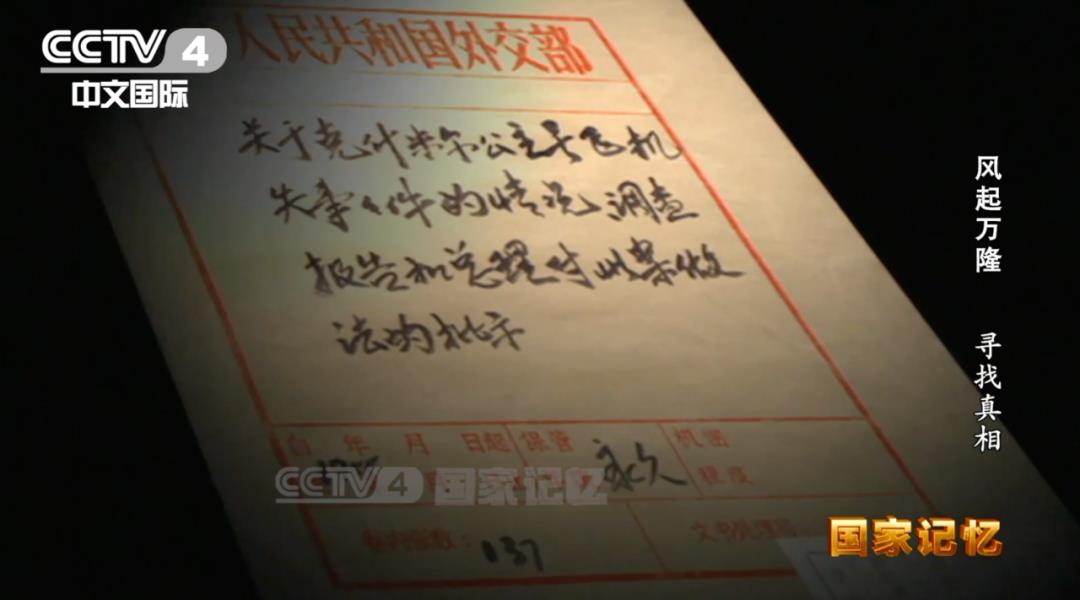 CCTV 4
中文国际
人民共和国外交部
关于克什米尔公主号飞机
失事事件的情况调查
报告和总理对此案做
法的批示
自 年 月 日起
保管
永久
机密
程度
卷内张数：137
文书处理号
风起万隆 寻找真相
CCTV 4 国家记忆
国家记忆